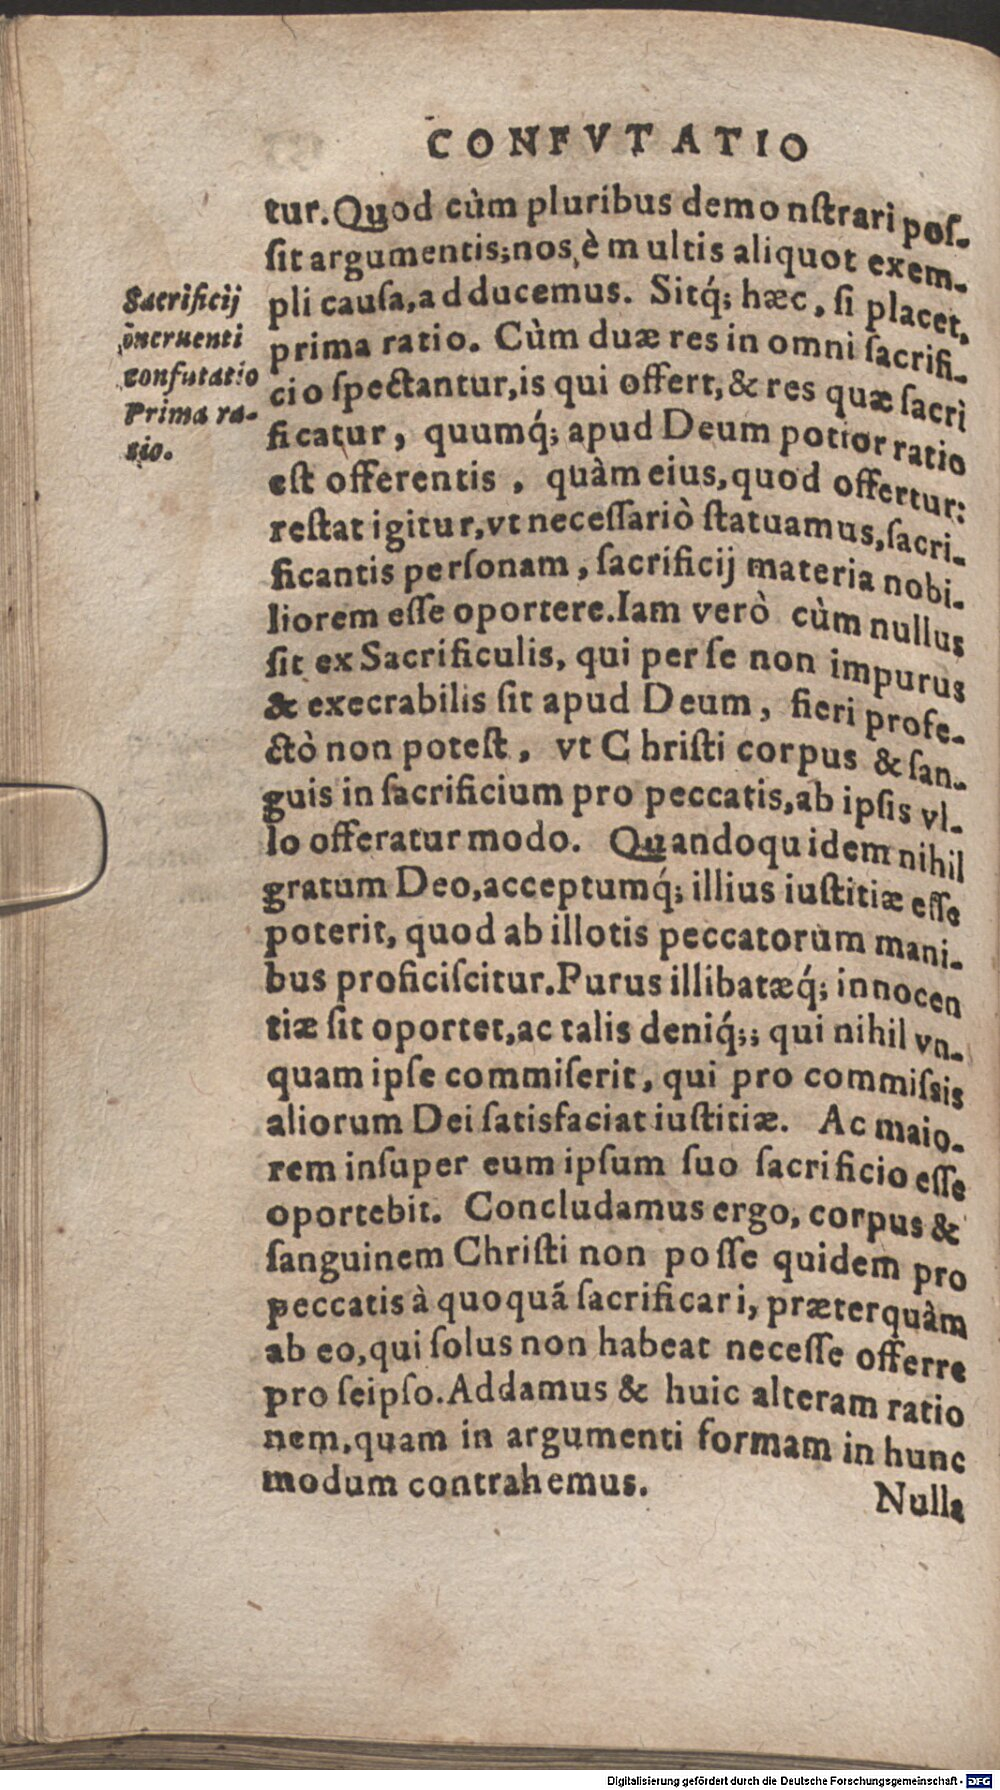 CONFVTATIO
tur. Quod cùm pluribus demonſtrari poſ-
ſit argumentis; nos, è multis aliquot exem-
pli cauſa, adducemus. Sitq́; hæc, ſi placet,
prima ratio. Cùm duæ res in omni ſacrifi-
cio ſpectantur, is qui offert, & res quæ ſacri
ficatur, quumq́; apud Deum potior ratio
eſt offerentis, quàm eius, quod offertur:
reſtat igitur, vt neceſſariò ſtatuamus, ſacri-
ficantis perſonam, ſacrificij materia nobi-
liorem eſſe oportere. Iam verò cùm nullus
ſit ex Sacrificulis, qui per ſe non impurus
& execrabilis ſit apud Deum, fieri profe-
ctò non poteſt, vt Chriſti corpus & ſan-
guis in ſacrificium pro peccatis, ab ipſis vl-
lo offeratur modo. Quandoquidem nihil
gratum Deo, acceptumq́; illius iuſtitiæ eſſe
poterit, quod ab illotis peccatorum mani-
bus proficiſcitur. Purus illibatæq́; innocen
tiæ ſit oportet, ac talis deniq́;; qui nihil vn-
quam ipſe commiſerit, qui pro commiſsis
aliorum Dei ſatisfaciat iuſtitiæ. Ac maio-
rem inſuper eum ipſum ſuo ſacrificio eſſe
oportebit. Concludamus ergo, corpus &
ſanguinem Chriſti non poſſe quidem pro
peccatis à quoquã ſacrificari, præterquàm
ab eo, qui ſolus non habeat neceſſe offerre
pro ſeipſo. Addamus & huic alteram ratio
nem, quam in argumenti formam in hunc
modum contrahemus.
Nulla
Sacrificij
incruenti
confutatio
Prima ra-
tio.
Digitalisierung gefördert durch die Deutsche Forschungsgemeinschaft - DFG